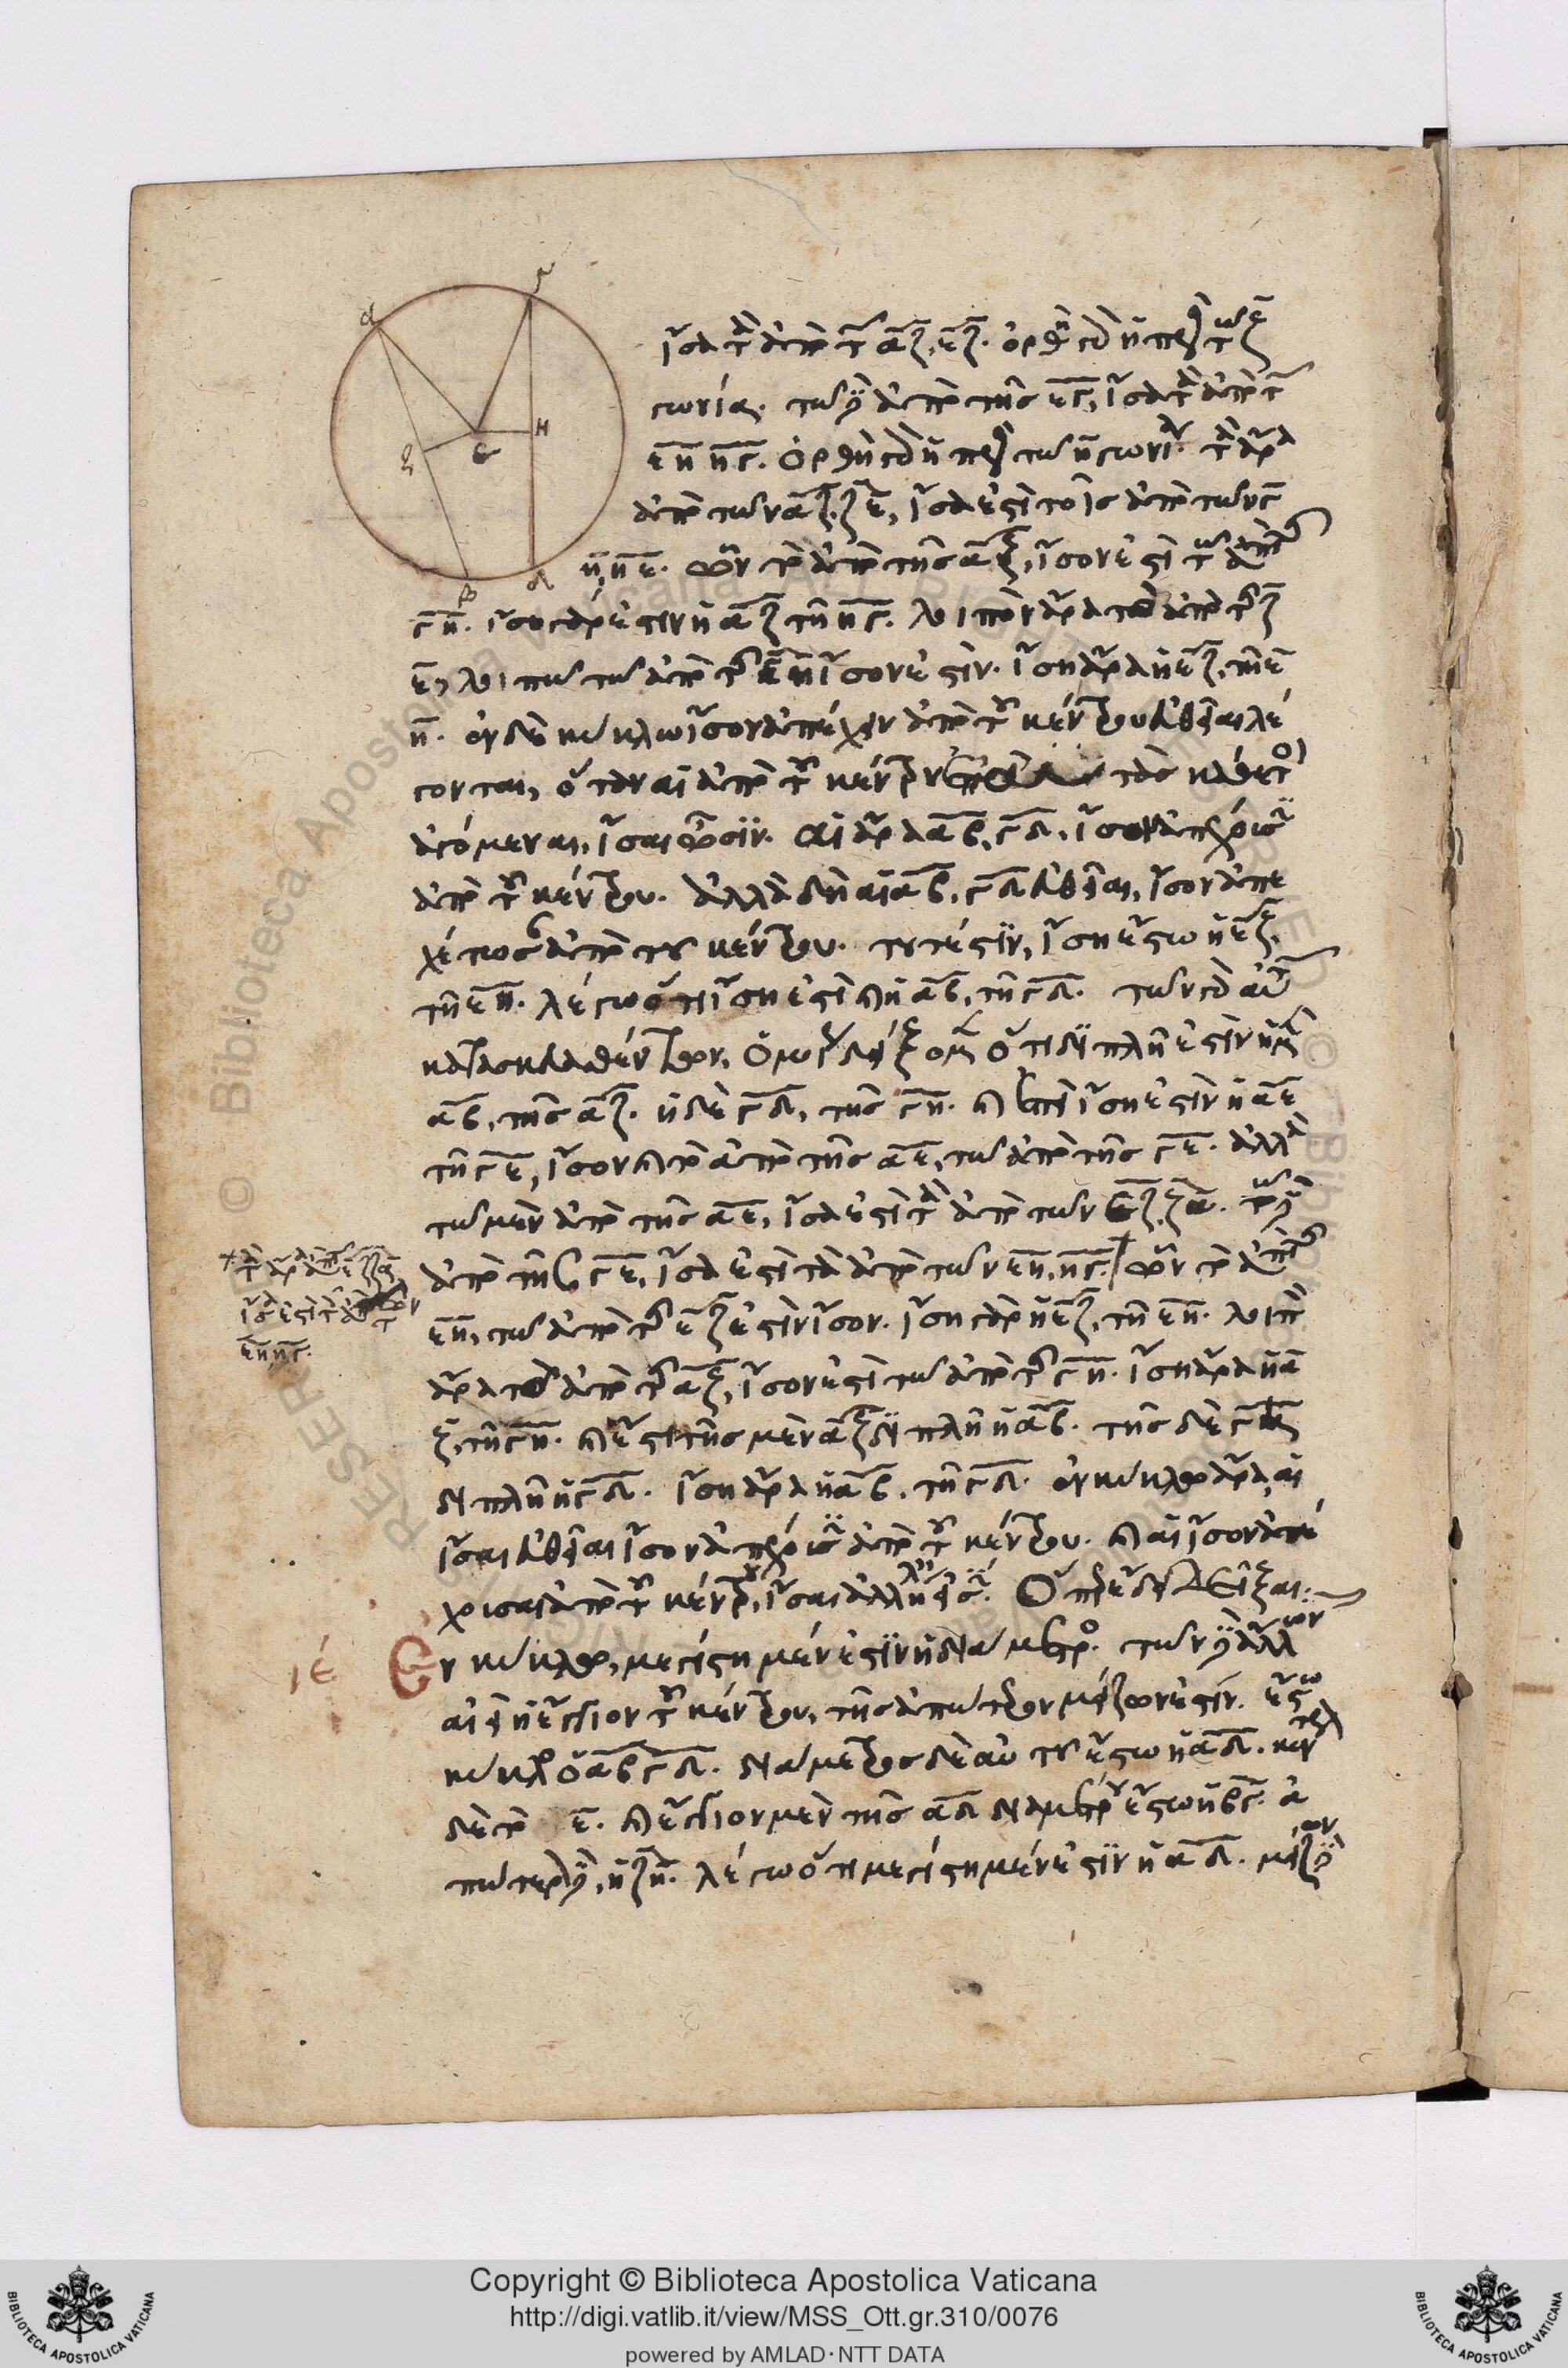 ἴσα τὰ ἀπὸ τῶν αζ, εζ. ὀρθὴ γὰρ ἡ πρὸς τῷ ζ
γωνία. τῷ δὲ ἀπὸ τῆς εγ, ἴσα τὰ ἀπὸ τῶν
εη ηγ. ὀρθὴ γὰρ ἡ πρὸς τῷ η γωνία. τὰ ἄρα
ἀπὸ τῶν αζ, ζε, ἴσα ἐστὶ τοῖς ἀπὸ τῶν γ
η, ηε. ὧν τὸ ἀπὸ τῆς αζ, ἴσον ἐστὶ τῷ ἀπὸ τῆς
γη. ἴση γάρ ἐστιν ἡ αζ τῇ ηγ. λοιπὸν ἄρα τὸ ἀπὸ τῆς ζ
ε, λοιπῷ τῷ ἀπὸ τῆς εη ἴσον ἐστίν. ἴση ἄρα ἡ εζ, τῇ ε
η. ἐν δὲ κύκλῳ ἴσον ἀπέχειν ἀπὸ τοῦ κέντρου εὐθεῖαι λέ
γονται, ὅταν αἱ ἀπὸ τοῦ κέντρου ἐπ' αὐτὰς κάθετοι
ἀγόμεναι, ἴσαι ὦσιν. αἱ ἄρα αβ, γδ, ἴσον ἀπέχουσιν
ἀπὸ τοῦ κέντρου. ἀλλὰ δὴ αἱ αβ, γδ εὐθεῖαι, ἴσον ἀπε
χέτωσαν ἀπὸ τοῦ κέντρου. τουτέστιν, ἴση ἔστω ἡ εζ,
τῇ εη. λέγω ὅτι ἴση ἐστὶ καὶ ἡ αβ, τῇ γδ. τῶν γὰρ αὐτῶν
κατασκευασθέντων, ὁμοίως δείξομεν ὅτι διπλῆ ἐστὶν ἡ μὲν
αβ, τῆς αζ. ἡ δὲ γδ, τῆς γη. καὶ ἐπεὶ ἴση ἐστὶν ἡ αε
τῇ γε, ἴσον καὶ τὸ ἀπὸ τῆς αε, τῷ ἀπὸ τῆς γε. ἀλλὰ
τῷ μὲν ἀπὸ τῆς αε, ἴσα ἐστὶ τὰ ἀπὸ τῶν εζ, ζα. τῷ δὲ
ἀπὸ τῆς γε, ἴσα ἐστὶ τὰ ἀπὸ τῶν εη, ηγ. ὧν τὸ ἀπὸ τῆς
εη, τῷ ἀπὸ τῆς εζ ἐστὶν ἴσον. ἴση γὰρ ἡ εζ, τῇ εη. λοιπὸν
ἄρα τὸ ἀπὸ τῆς αζ, ἴσον ἐστὶ τῷ ἀπὸ τῆς γη. ἴση ἄρα ἡ α
ζ, τῇ γη. καὶ ἔστι τῆς μὲν αζ διπλῆ ἡ αβ. τῆς δὲ γη
διπλῆ ἡ γδ. ἴση ἄρα ἡ αβ, τῇ γδ. ἐν κύκλῳ ἄρα, αἱ
ἴσαι εὐθεῖαι ἴσον ἀπέχουσιν ἀπὸ τοῦ κέντρου. καὶ αἱ ἴσον ἀπέ
χουσαι ἀπὸ τοῦ κέντρου, ἴσαι ἀλλήλαις εἰσίν. Ὅπερ ἔδει δεῖξαι:
ιε Ἐν κύκλῳ, μεγίστη μέν ἐστιν ἡ διάμετρος. τῶν δὲ ἄλλων
αἰεὶ ἡ ἔγγιον τοῦ κέντρου, τῆς ἀπώτερον μείζων ἐστίν. ἔστω
κύκλος ὁ αβγδ. διάμετρος δὲ αὐτοῦ ἔστω ἡ αδ. κέντρον
δὲ τὸ ε. καὶ ἔγγιον μὲν τῆς αδ διαμέτρου ἔστω ἡ βγ. ἀ
πώτερον δὲ, ἡ ζη. λέγω ὅτι μεγίστη μέν ἐστιν ἡ αδ. μείζων δὲ
τὰ ἄρα ἀπὸ τῶν εζ ζα
ἴσα ἐστὶ τοῖς ἀπὸ τῶν
εη ηγ.
α γ ζ ε η β δ
Copyright © Biblioteca Apostolica Vaticana
http://digi.vatlib.it/view/MSS_Ott.gr.310/0076
powered by AMLAD·NTT DATA
BIBLIOTECA APOSTOLICA VATICANA
BIBLIOTECA APOSTOLICA VATICANA